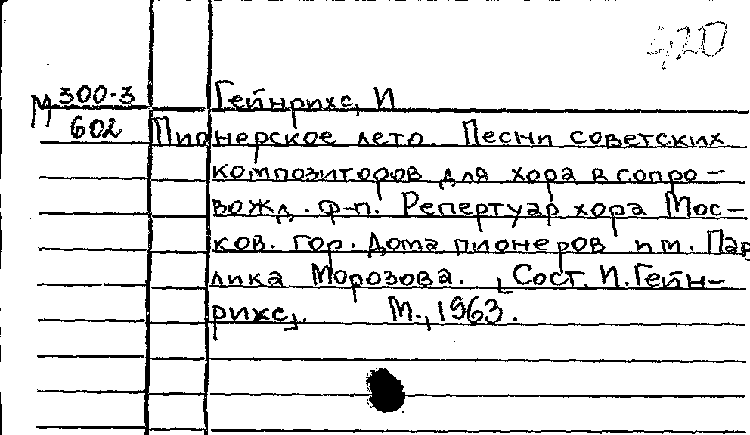 420
М 300-3 Гейнрихс, И
602 Пионерское лето. Песни советских
композиторов для хора в сопро-
вожд. ф-п. Репертуар хора Мос-
ков. гор. Дома пионеров им. Пав
лика Морозова. [Сост. И. Гейн-
рихс]. М., 1963.